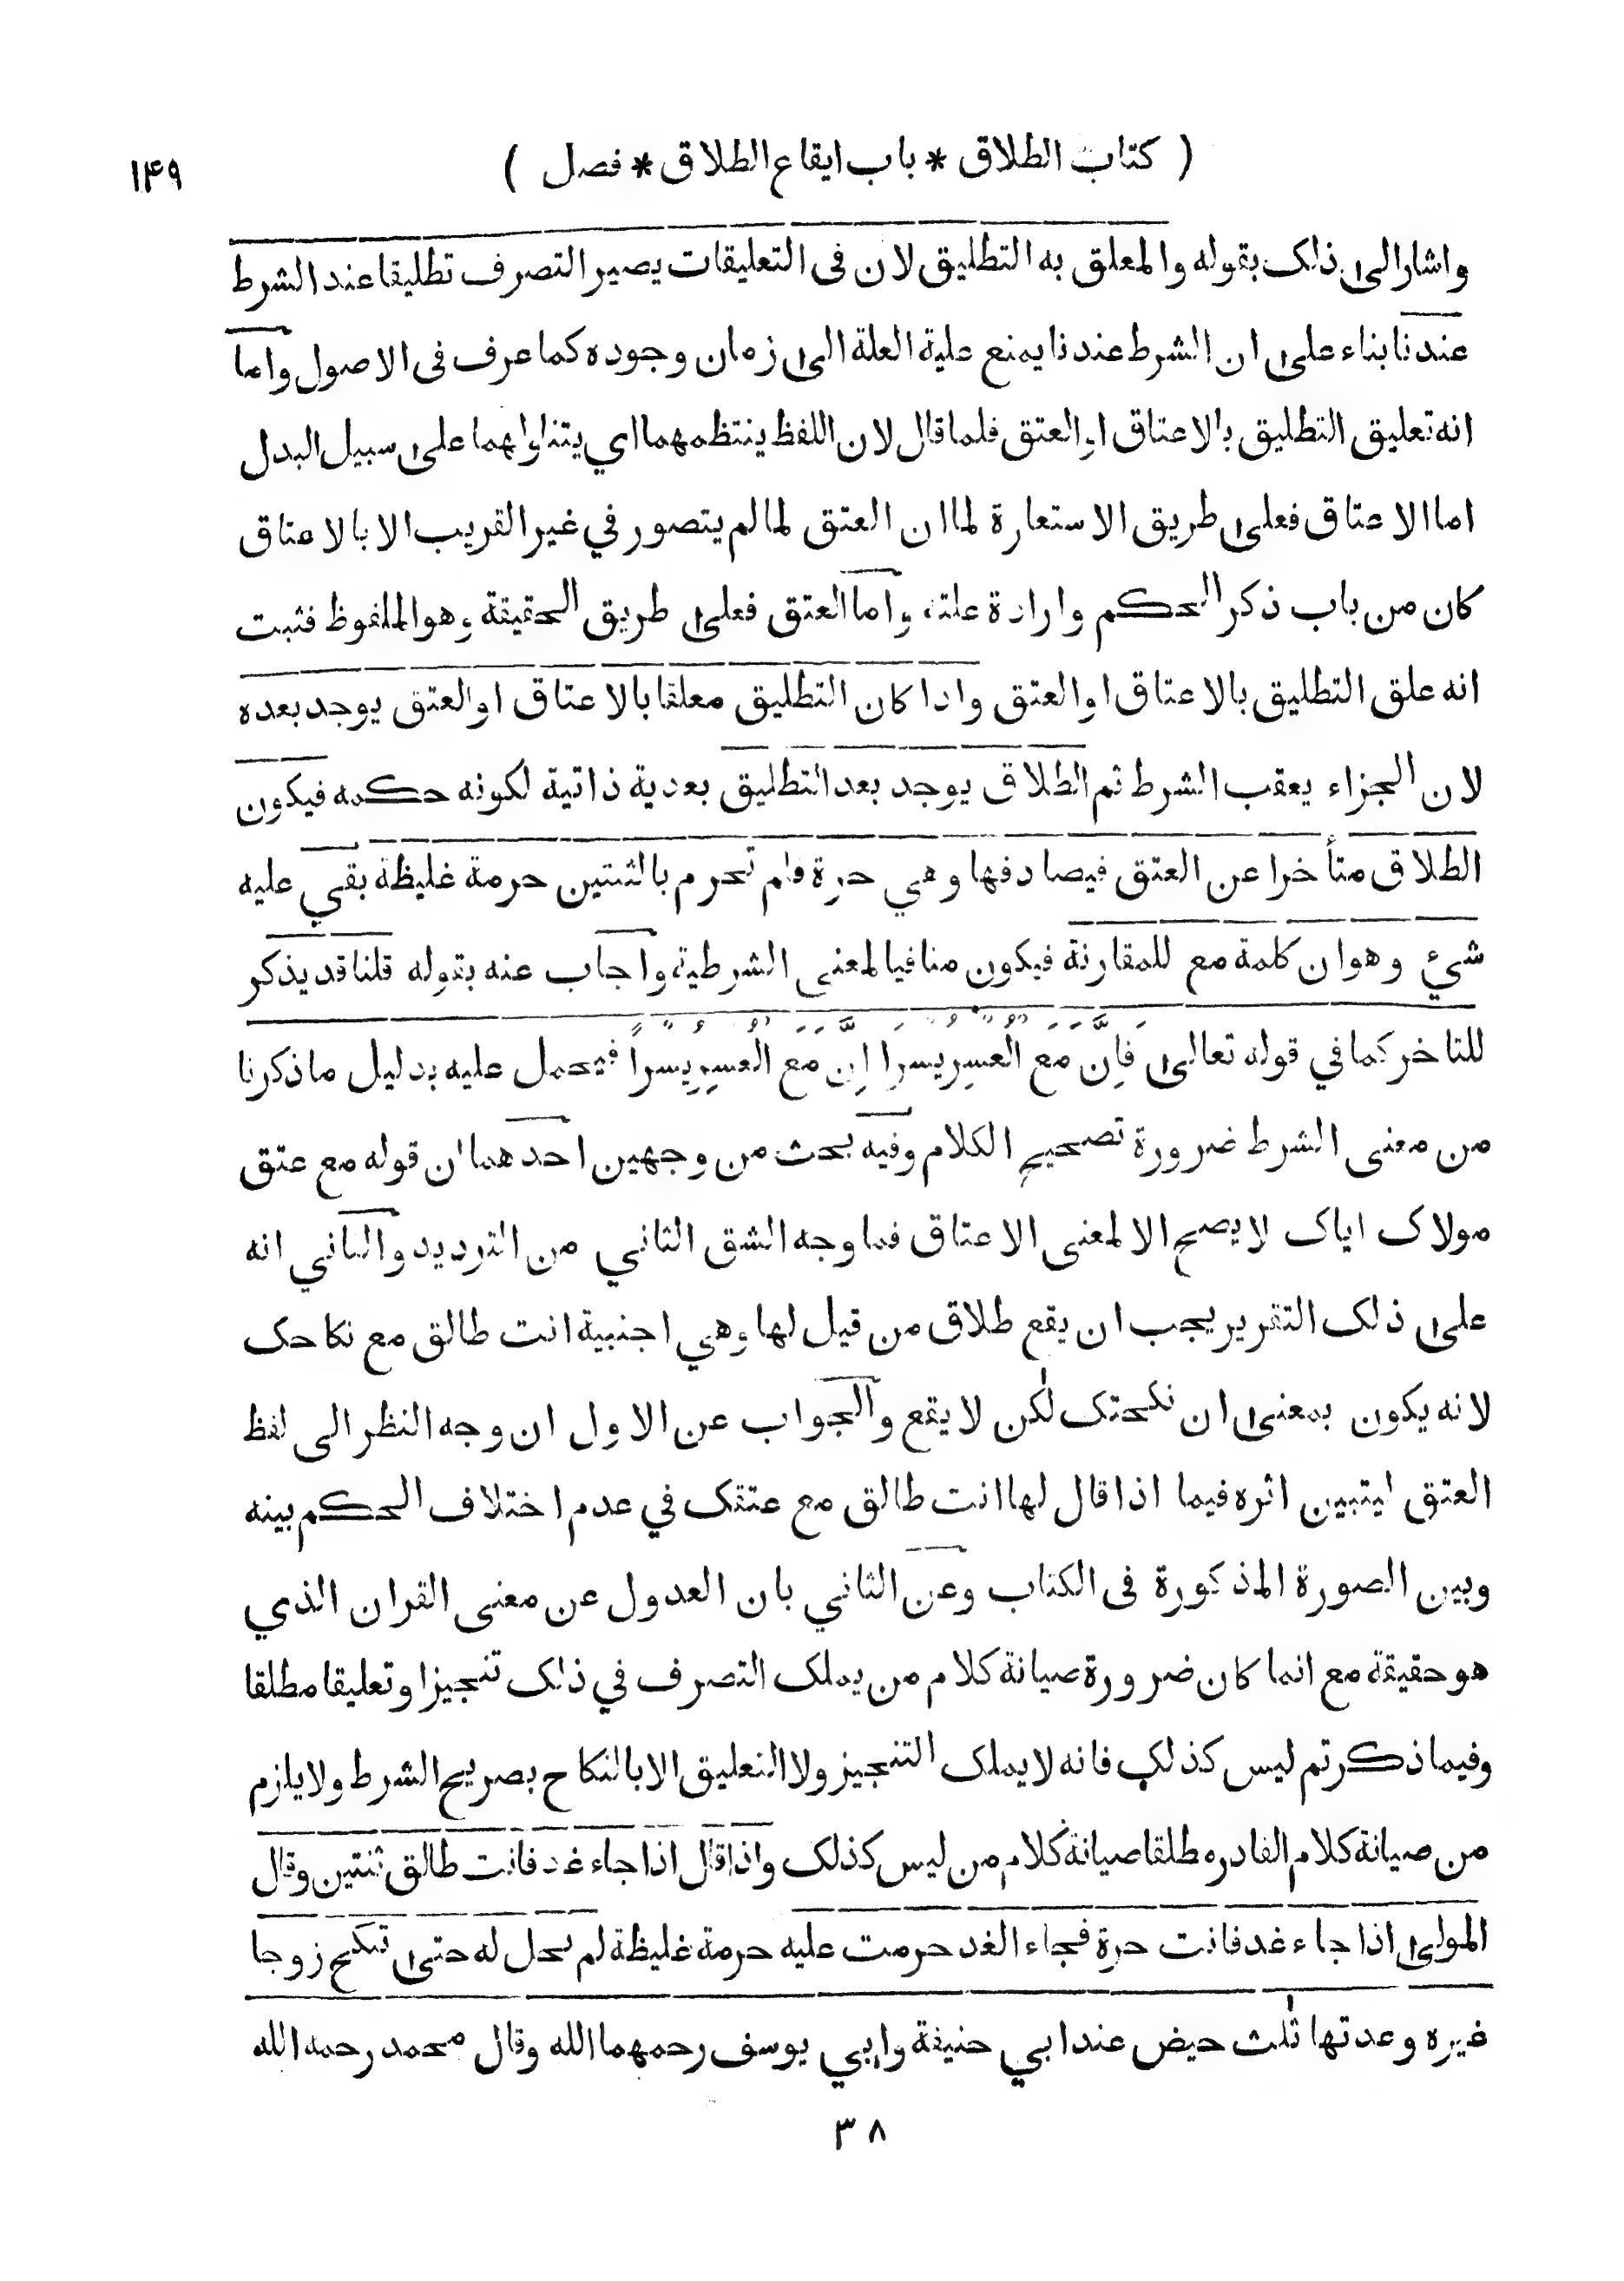 ( كتاب الطلاق * باب ايقاع الطلاق * فصل )
١۴٩
واشار الى ذلك بقوله والمعلق به التطليق لان فى التعليقات يصير التصرف تطليقا عند الشرط
عندنا بناء على ان الشرط عندنا يمنع علية العلة الى زمان وجوده كما عرف فى الاصول واما
انه تعليق التطليق بالاعتاق او العتق فلما قال لان اللفظ ينتظمهما اي يتناولهما على سبيل البدل
اما الاعتاق فعلى طريق الاستعارة لما ان العتق لما لم يتصور في غير القريب الا بالاعتاق
كان من باب ذكر الحكم وارادة علته واما العتق فعلى طريق الحقيقة وهو الملفوظ فثبت
انه علق التطليق بالاعتاق او العتق واذا كان التطليق معلقا بالاعتاق او العتق يوجد بعده
لان الجزاء يعقب الشرط ثم الطلاق يوجد بعد التطليق بعدية ذاتية لكونه حكمه فيكون
الطلاق متأخرا عن العتق فيصادفها وهي حرة فلم تحرم بالثنتين حرمة غليظة بقي عليه
شيء وهو ان كلمة مع للمقارنة فيكون منافيا لمعنى الشرطية واجاب عنه بقوله قلنا قد يذكر
للتاخر كما في قوله تعالى فَاِنَّ مَعَ الْعُسْرِ يُسْرًا اِنَّ مَعَ الْعُسْرِ يُسْرًا فتحمل عليه بدليل ما ذكرنا
من معنى الشرط ضرورة تصحيح الكلام وفيه بحث من وجهين احدهما ان قوله مع عتق
مولاك اياك لا يصح الا لمعنى الاعتاق فما وجه الشق الثاني من الترديد والثاني انه
على ذلك التقرير يجب ان يقع طلاق من قيل لها وهي اجنبية انت طالق مع نكاحك
لانه يكون بمعنى ان نكحتك لكن لا يقع والجواب عن الاول ان وجه النظر الى لفظ
العتق ليتبين اثره فيما اذا قال لها انت طالق مع عتقك في عدم اختلاف الحكم بينه
وبين الصورة المذكورة فى الكتاب وعن الثاني بان العدول عن معنى القران الذي
هو حقيقة مع انما كان ضرورة صيانة كلام من يملك التصرف في ذلك تنجيزا وتعليقا مطلقا
وفيما ذكرتم ليس كذلك فانه لا يملك التنجيز ولا التعليق الا بالنكاح بصريح الشرط ولا يلزم
من صيانة كلام القادر مطلقا صيانة كلام من ليس كذلك واذا قال اذا جاء غد فانت طالق ثنتين وقال
المولى اذا جاء غد فانت حرة فجاء الغد حرمت عليه حرمة غليظة لم يحل له حتى تنكح زوجا
غيره وعدتها ثلث حيض عند ابي حنيفة وابي يوسف رحمهما الله وقال محمد رحمه الله
٣٨